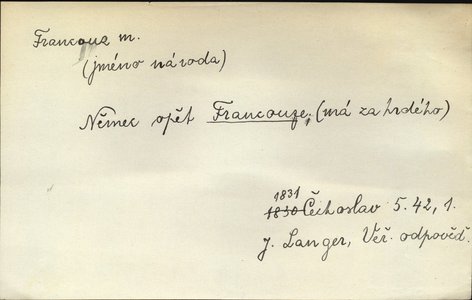 Francouz m.
(jméno národa)
Němec opět Francouze, (má za hrdého)
1831
1830 Čechoslav 5. 42, 1.
J. Langer, Veř. odpověď.